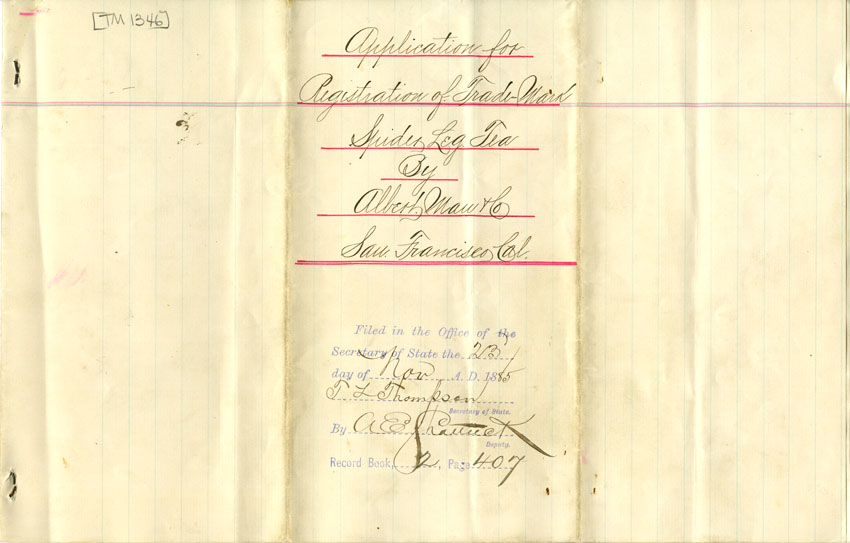 [TM 1346]
Application for
Registration of Trade-Mark
Spider Leg Tea
By
Albert Mau & Co
San Francisco Cal.
Filed in the Office of the
Secretary of State the 23
day of Nov A. D. 1885
T L Thompson
Secretary of State.
By A E Shattuck
Deputy.
Record Book, 2, Page 407